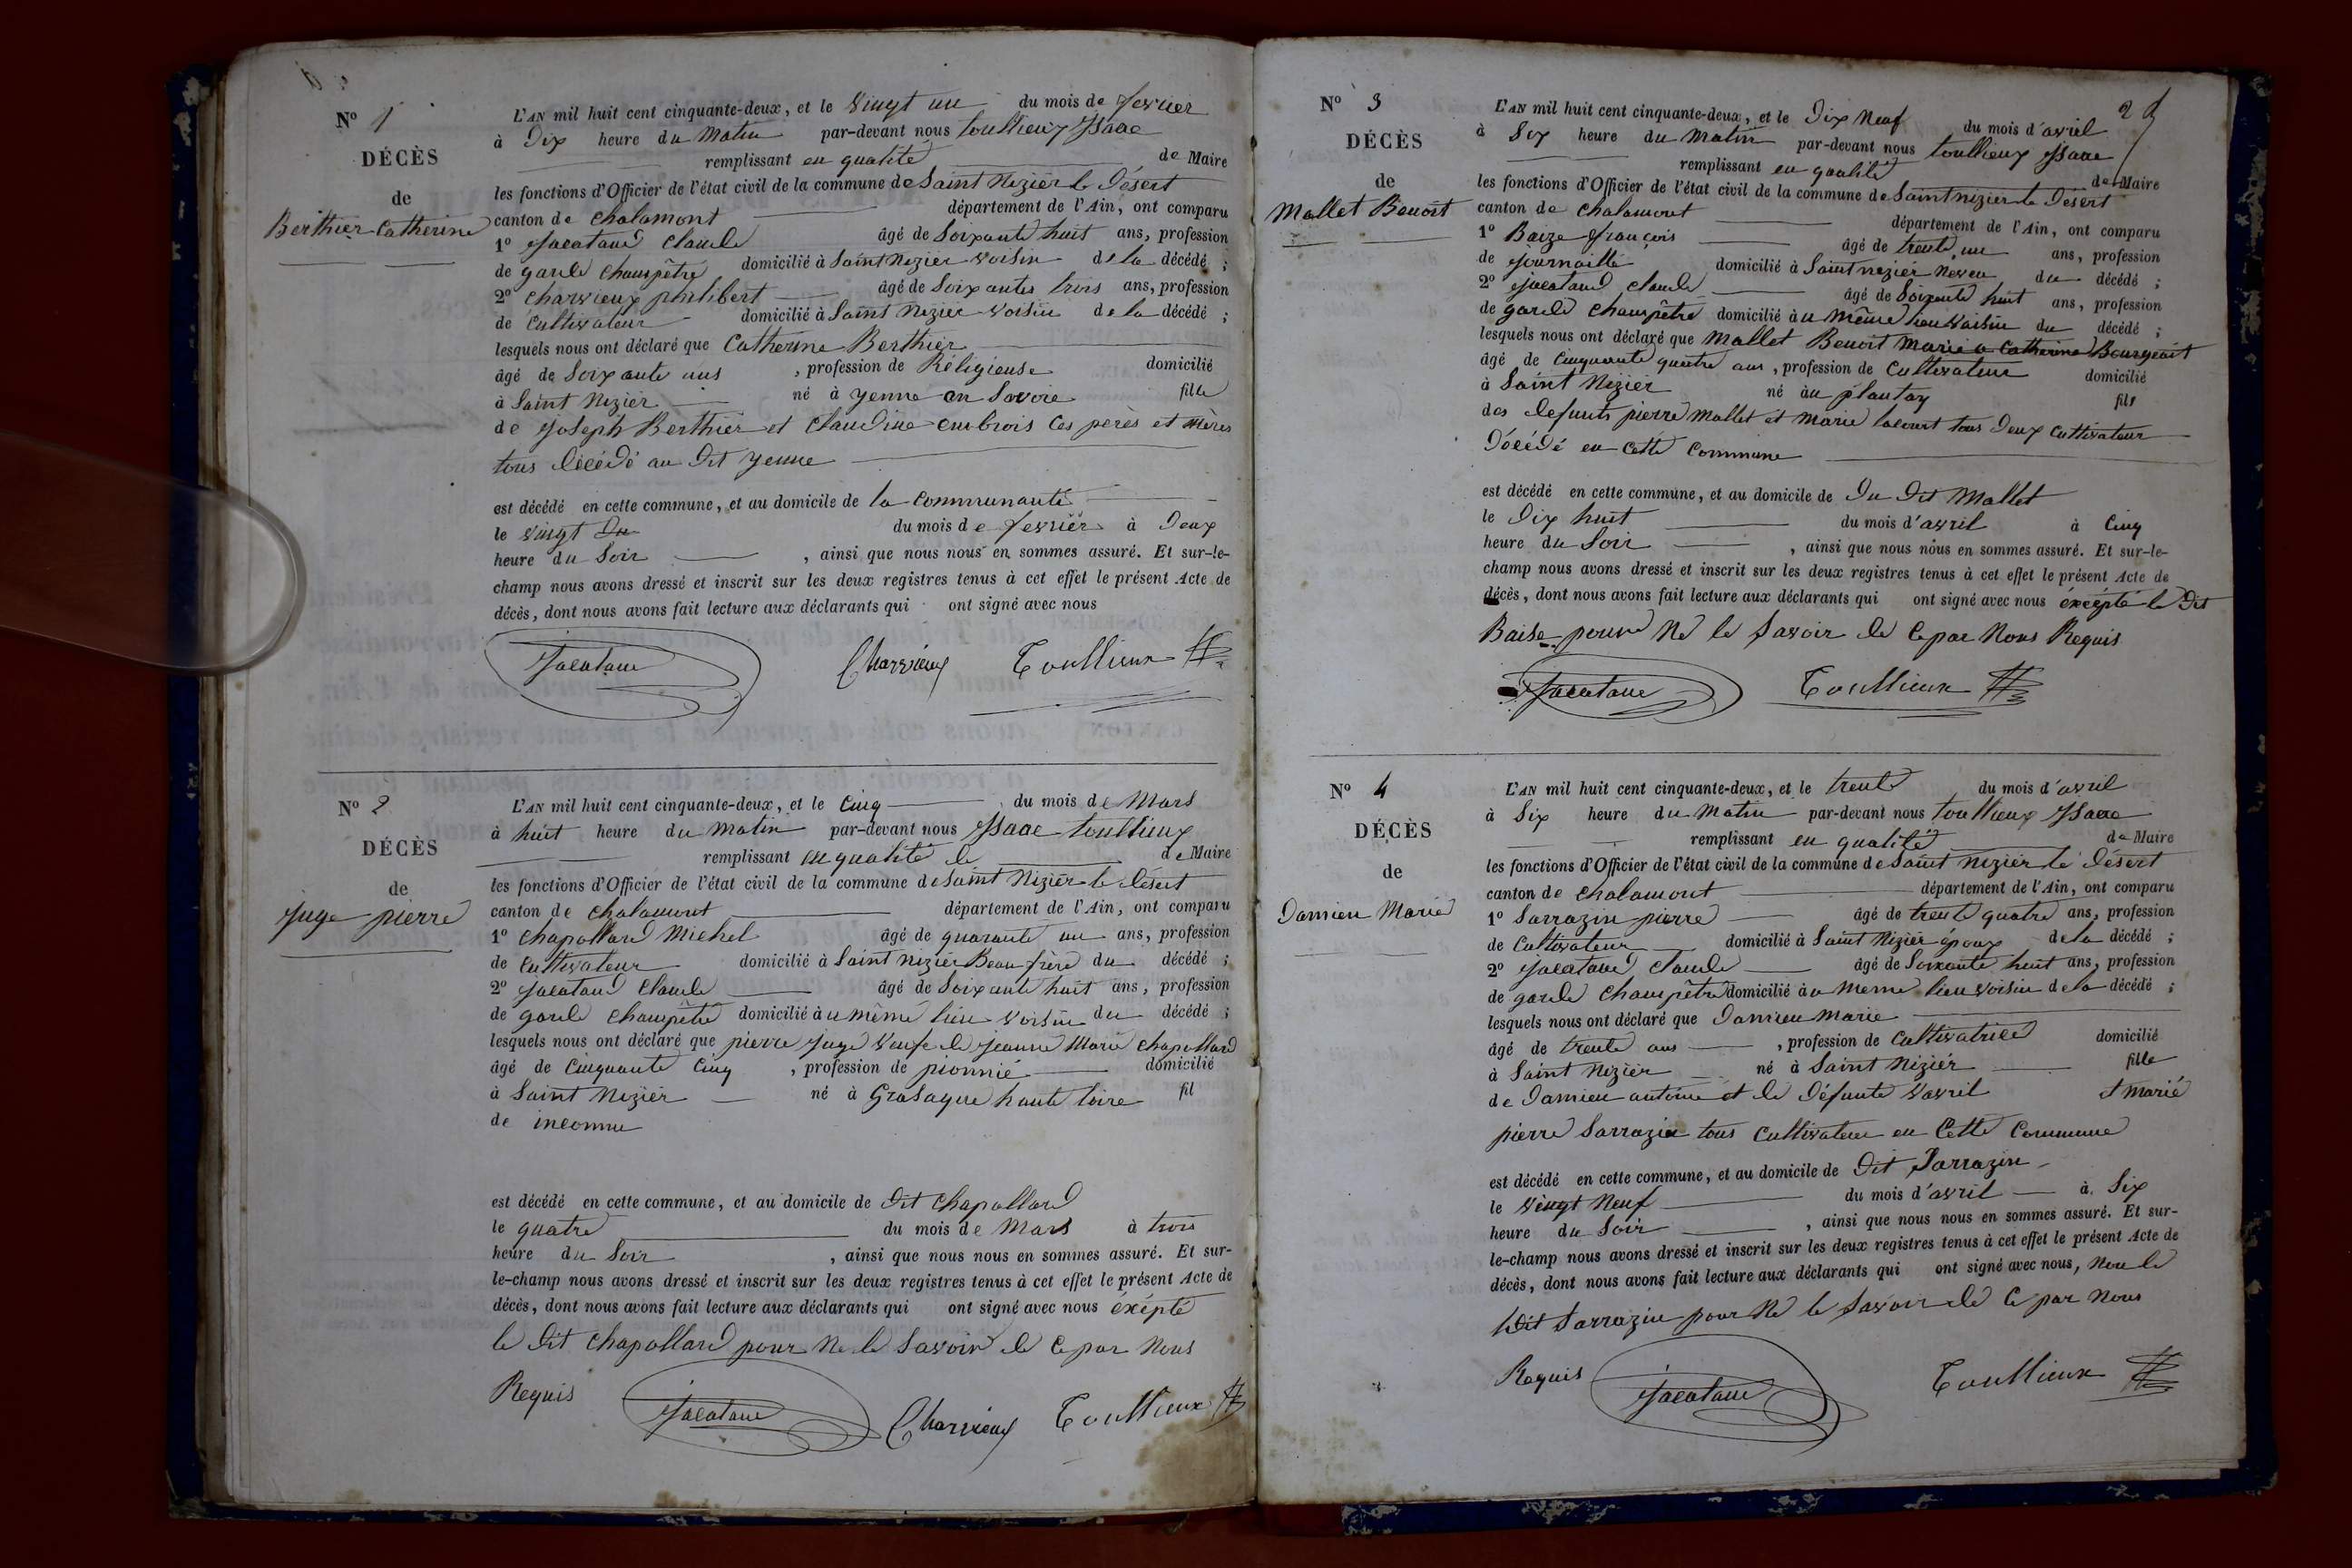 Nº 1
DÉCÈS
de
Berthier Catherine
L'AN mil huit cent cinquante-deux, et le vingt un du mois de fevrier
à Dix heure du Matin par-devant nous toullieux Isaac
remplissant en qualité de Maire
les fonctions d'Officier de l'état civil de la commune de Saint Nizier le Désert
canton de Chalamont département de l'Ain, ont comparu
1º Jacataud Claude âgé de Soixante huit ans, profession
de garde Champêtre domicilié à Saint Nizier voisin de la décédé ;
2º Charvieux philibert âgé de Soixantes trois ans, profession
de Cultivateur domicilié à Saint Nizier voisin de la décédé ;
lesquels nous ont déclaré que Catherine Berthier
âgé de Soixante ans , profession de Réligieuse domicilié
à Saint Nizier né à yenne en Savoie fille
de Joseph Berthier et Claudine embrois Ces perès et mères
tous Décédé au Dit yenne
est décédé en cette commune, et au domicile de la Communauté
le vingt du du mois de fevrier à Deux
heure du Soir , ainsi que nous nous en sommes assuré. Et sur-le-
champ nous avons dressé et inscrit sur les deux registres tenus à cet effet le présent Acte de
décès, dont nous avons fait lecture aux déclarants qui ont signé avec nous
Jacataud Charvieux Toullieux
Nº 2
DÉCÈS
de
Juge pierre
L'AN mil huit cent cinquante-deux, et le Cinq du mois de Mars
à huit heure du Matin par-devant nous Isaac toullieux
remplissant en qualité de de Maire
les fonctions d'Officier de l'état civil de la commune de Saint Nizier le Désert
canton de Chalamont département de l'Ain, ont comparu
1º Chapollard Michel âgé de quarante un ans, profession
de Cultivateur domicilié à Saint Nizier Beau frère du décédé ;
2º Jacataud Claude âgé de Soixante huit ans, profession
de garde Champêtre domicilié à u même lieu voisin du décédé ;
lesquels nous ont déclaré que pierre Juge Veuf de Jeanne Marie Chapollard
âgé de Cinquante Cinq , profession de pionnié domicilié
à Saint Nizier né à Grasaque haute loire fil
de inconnu
est décédé en cette commune, et au domicile de Dit Chapollard
le quatre du mois de Mars à trois
heure du Soir , ainsi que nous nous en sommes assuré. Et sur-
le-champ nous avons dressé et inscrit sur les deux registres tenus à cet effet le présent Acte de
décès, dont nous avons fait lecture aux déclarants qui ont signé avec nous éxépté
le Dit Chapollard pour Ne le Savoir de Ce par Nous
Requis
Jacataud Charvieux Toullieux
2
Nº 3
DÉCÈS
de
Mallet Benoit
L'AN mil huit cent cinquante-deux, et le Dix Neuf du mois d'avril
à Six heure du Matin par-devant nous toullieux Isaac
remplissant en qualité de Maire
les fonctions d'Officier de l'état civil de la commune de Saint nizier le Désert
canton de Chalamont département de l'Ain, ont comparu
1º Baize françois âgé de trente un ans, profession
de Journaillé domicilié à Saint nizier Neveu du décédé ;
2º Jacataud Claude âgé de Soixante huit ans, profession
de garde Champêtre domicilié à u même lieu voisin du décédé ;
lesquels nous ont déclaré que Mallet Benoit Marie a Catherine Bourgeait
âgé de Cinquante quatre ans , profession de Cultivateur domicilié
à Saint Nizier né àu plantay fils
des defunts pierre Mallet et Marie lacourt tous Deux Cultivateur
Décédé en Cette Commune
est décédé en cette commune, et au domicile de Du Dit Mallet
le Dix huit du mois d'avril à Cinq
heure du Soir , ainsi que nous nous en sommes assuré. Et sur-le-
champ nous avons dressé et inscrit sur les deux registres tenus à cet effet le présent Acte de
décès, dont nous avons fait lecture aux déclarants qui ont signé avec nous éxépté le Dit
Baise pour Ne le Savoir de Ce par Nous Requis
Jacataud Toullieux
Nº 4
DÉCÈS
de
Damieu Marie
L'AN mil huit cent cinquante-deux, et le trente du mois d'avril
à Six heure du Matin par-devant nous toullieux Isaac
remplissant en qualité de Maire
les fonctions d'Officier de l'état civil de la commune de Saint Nizier le Désert
canton de Chalamont département de l'Ain, ont comparu
1º Sarrazin pierre âgé de trente quatre ans, profession
de Cultivateur domicilié à Saint Nizier époux de la décédé ;
2º Jacataud Claude âgé de Soixante huit ans, profession
de garde Champêtre domicilié à u meme lieu voisin de la décédé ;
lesquels nous ont déclaré que Damieu Marie
âgé de trente ans , profession de Cultivatrice domicilié
à Saint Nizier né à Saint Nizier fille
de Damieu antoine et de Défunte Vavril et Marié
pierre Sarrazin tous Cultivateur en Cette Commune
est décédé en cette commune, et au domicile de Dit Sarrazin
le Vingt Neuf du mois d'avril à Six
heure du Soir , ainsi que nous nous en sommes assuré. Et sur-
le-champ nous avons dressé et inscrit sur les deux registres tenus à cet effet le présent Acte de
décès, dont nous avons fait lecture aux déclarants qui ont signé avec nous, Non le
Dit Sarrazin pour Ne le Savoir de Ce par Nous
Requis
Jacataud Toullieux